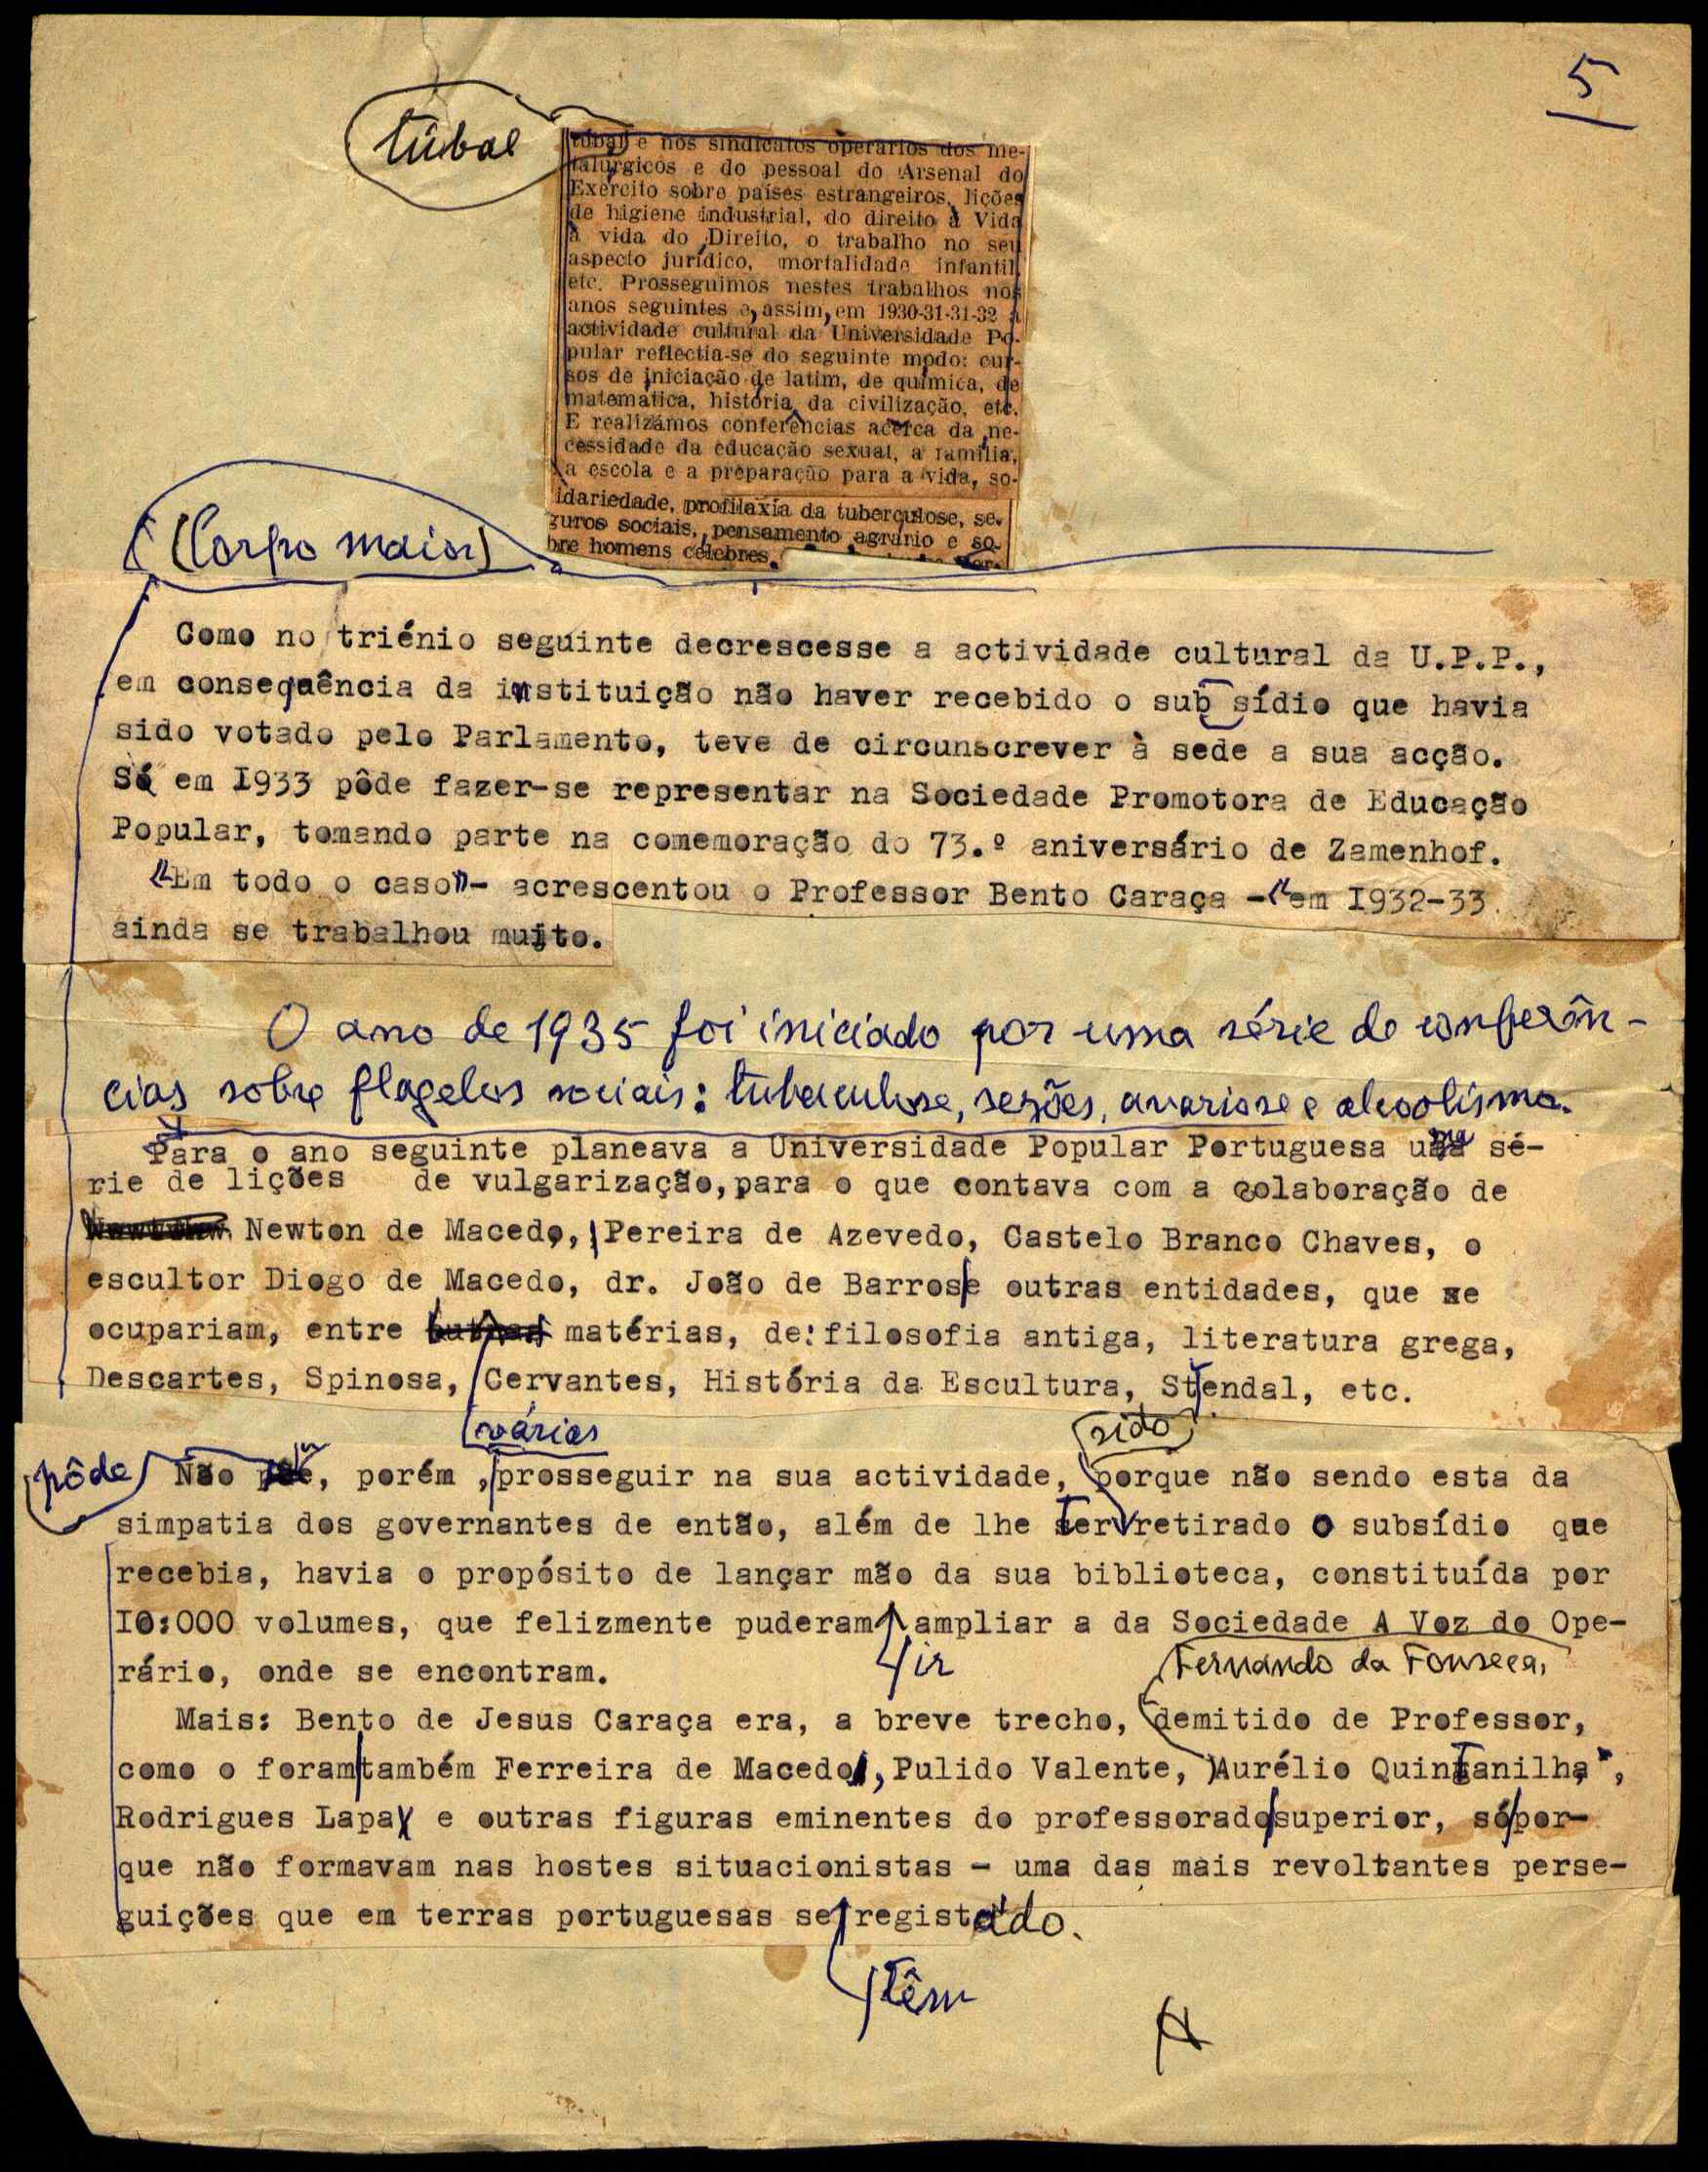 5
túbal
tubal e nos sindicatos operários dos me-
talúrgicos e do pessoal do Arsenal do
Exército sobre países estrangeiros, lições
de higiene industrial, do direito à Vida
à vida do Direito, o trabalho no seu
aspecto jurídico, mortalidade infantil
etc. Prosseguimos nestes trabalhos nos
anos seguintes e, assim, em 1930-31-31-32 a
actividade cultural da Universidade Po-
pular reflectia-se do seguinte modo: cur-
sos de iniciação de latim, de química, de
matemática, história da civilização, etc.
E realizámos conferências acêrca da ne-
cessidade da educação sexual, a família,
a escola e a preparação para a vida, so-
idariedade, profilaxia da tuberculose, se-
guros sociais, pensamento agrário e so-
bre homens célebres.
(Corpo maior)
Como no triénio seguinte decrescesse a actividade cultural da U.P.P.,
em consequência da instituição não haver recebido o sub sídio que havia
sido votado pelo Parlamento, teve de circunscrever à sede a sua acção.
Só em I933 pôde fazer-se representar na Sociedade Promotora de Educação
Popular, tomando parte na comemoração do 73.º aniversário de Zamenhof.
"Em todo o caso"- acrescentou o Professor Bento Caraça -"em I932-33
ainda se trabalhou muito.
O ano de 1935 foi iniciado por uma série de conferên-
cias sobre flagelos sociais: tuberculose, sezões, avariose e alcoolismo.
Para o ano seguinte planeava a Universidade Popular Portuguesa uma sé-
rie de lições de vulgarização, para o que contava com a colaboração de
Newton de Macedo, Pereira de Azevedo, Castelo Branco Chaves, o
escultor Diogo de Macedo, dr. João de Barros e outras entidades, que se
ocupariam, entre outras matérias, de: filosofia antiga, literatura grega,
Descartes, Spinosa, Cervantes, História da Escultura, Stendal, etc.
várias
sido
pôde
Não , porém , prosseguir na sua actividade, porque não sendo esta da
simpatia dos governantes de então, além de lhe ter retirado o subsídio que
recebia, havia o propósito de lançar mão da sua biblioteca, constituída por
I0:000 volumes, que felizmente puderam ampliar a da Sociedade A Voz do Ope-
ir
rário, onde se encontram.
Fernando da Fonseca,
Mais: Bento de Jesus Caraça era, a breve trecho, demitido de Professor,
como o foram também Ferreira de Macedo, Pulido Valente, Aurélio Quintanilha,
Rodrigues Lapa e outras figuras eminentes do professorado superior, só por-
que não formavam nas hostes situacionistas - uma das mais revoltantes perse-
guições que em terras portuguesas se registado.
têm